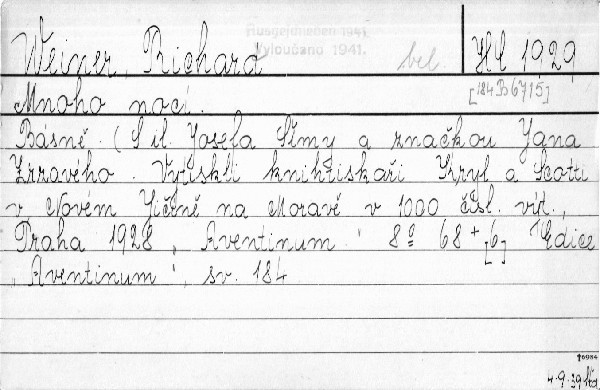 Ausgeschieden 1941.
Vyloučeno 1941.
Weiner, Richard bel. Hd 1929
Mnoho nocí. [184 B 6715]
Básně. (S il. Josefa Šímy a značkou Jana
Zrzavého. Vytiskli knihtiskaři Kryl a Scotti
v Novém Jičíně na Moravě v 1000 čísl. výt.,
Praha 1928 "Aventinum". 8° 68 + [6] Edice
"Aventinum", sv. 184.
4.9.39